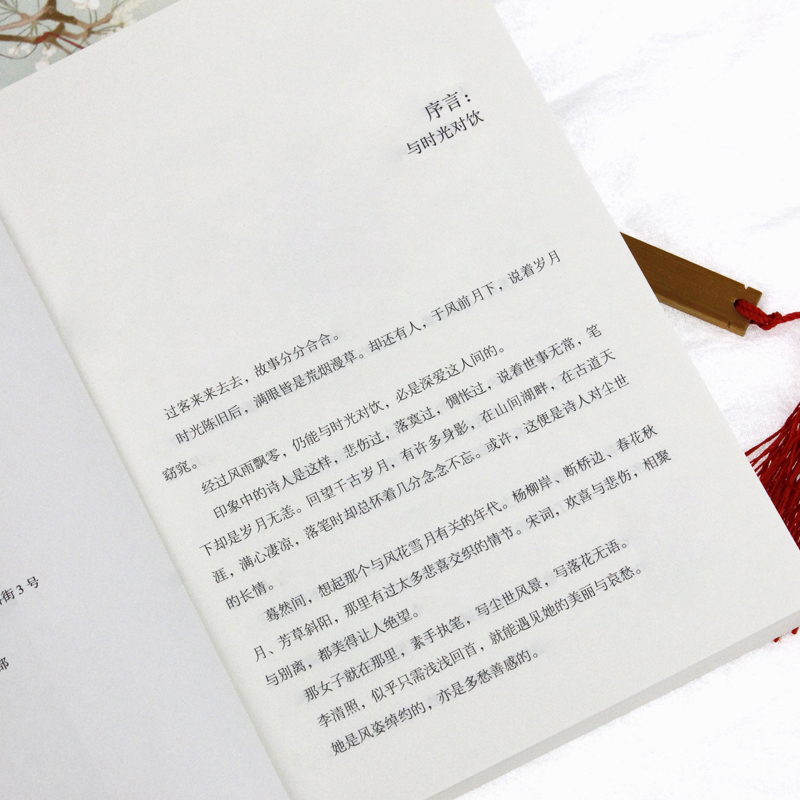 序言：
与时光对饮
过客来来去去，故事分分合合。
时光陈旧后，满眼皆是荒烟漫草。却还有人，于风前月下，说着岁月
窈窕。
经过风雨飘零，仍能与时光对饮，必是深爱这人间的。
印象中的诗人是这样，悲伤过，落寞过，惆怅过，说着世事无常，笔
下却是岁月无恙。回望千古岁月，有许多身影，在山间湖畔，在古道天
涯，满心凄凉，落笔时却总怀着几分念念不忘。或许，这便是诗人对尘世
的长情。
蓦然间，想起那个与风花雪月有关的年代。杨柳岸、断桥边、春花秋
月、芳草斜阳，那里有过太多悲喜交织的情节。宋词，欢喜与悲伤，相聚
与别离，都美得让人绝望。
那女子就在那里，素手执笔，写尘世风景，写落花无语。
李清照，似乎只需浅浅回首，就能遇见她的美丽与哀愁。
她是风姿绰约的，亦是多愁善感的。
街3号
部